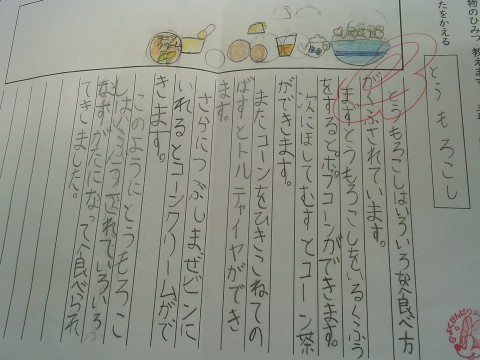 物のひみつ 教えます
たをかえる
とうもろこし
とうもろこしはいろいろな食べ方
がくふうされています。
まずとうもろこしをいるくふう
をすると、ポプコーンができます。
次にほしてむすとコーン茶
ができます。
またコーンをひきこねての
ばすとトルティイヤができ
ます。
さらにつぶしまぜビンに
いれるとコーンクリームがで
きます。
このようにとうもろこ
しはくふうされていろいろ
なすがたになって食べられ
てきました。